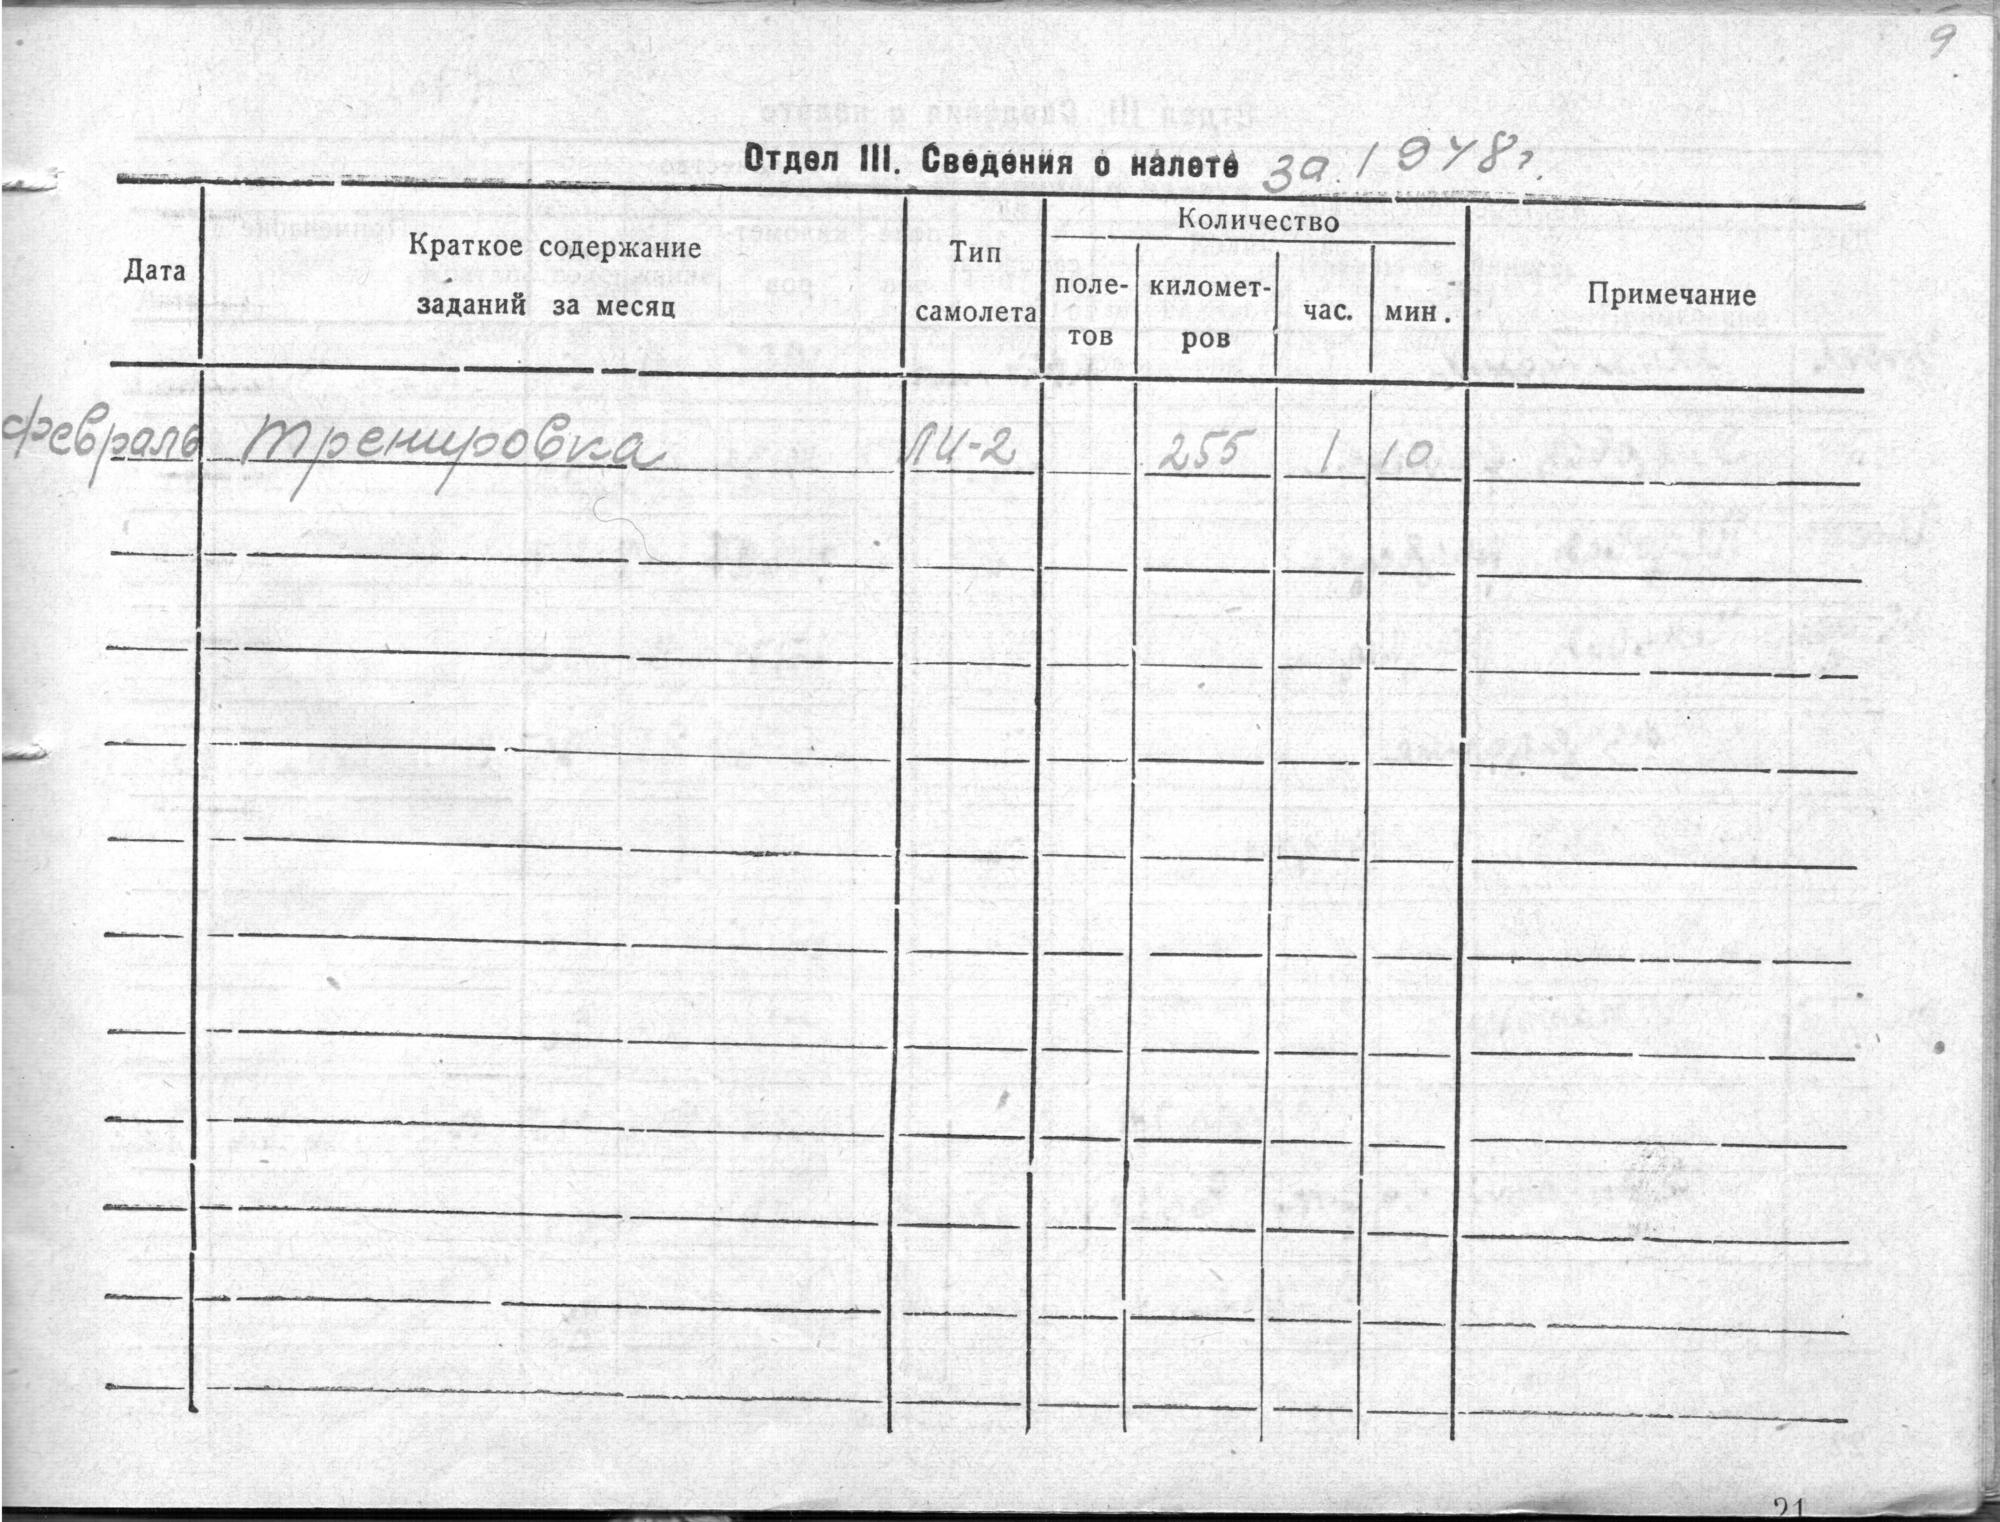 9
Отдел III. Сведения о налете за 1948г.
Дата
Краткое содержание
заданий за месяц
Тип
самолета
Количество
поле-
тов
километ-
ров
час.
мин.
Примечание
февраль тренировка ЛИ-2 255 1 10
21